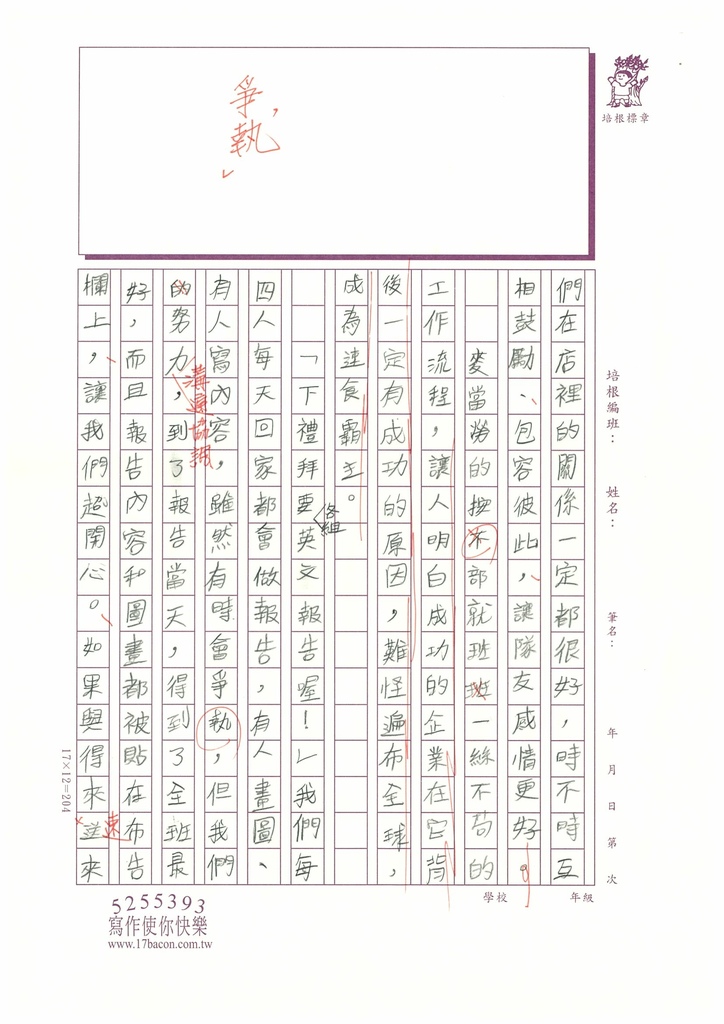 爭執
培根標章
培根編班： 姓名： 筆名： 年 月 日 第 次
們在店裡的關係一定都很好，時不時互
相鼓勵、包容彼此，讓隊友感情更好。
麥當勞的按不部就班班一絲不苟的
工作流程，讓人明白成功的企業在它背
後一定有成功的原因，難怪遍布全球，
成為速食霸主。
「下禮拜要英文報告喔！」我們每
各組
四人每天回家都會做報告，有人畫圖、
有人寫內容，雖然有時會爭執，但我們
的努力，到了報告當天，得到了全班最
溝通協調
好，而且報告內容和圖畫都被貼在布告
欄上，讓我們超開心。如果與得來來
速
17×12=204
學校 年級
5255393
寫作使你快樂
www.17bacon.com.tw